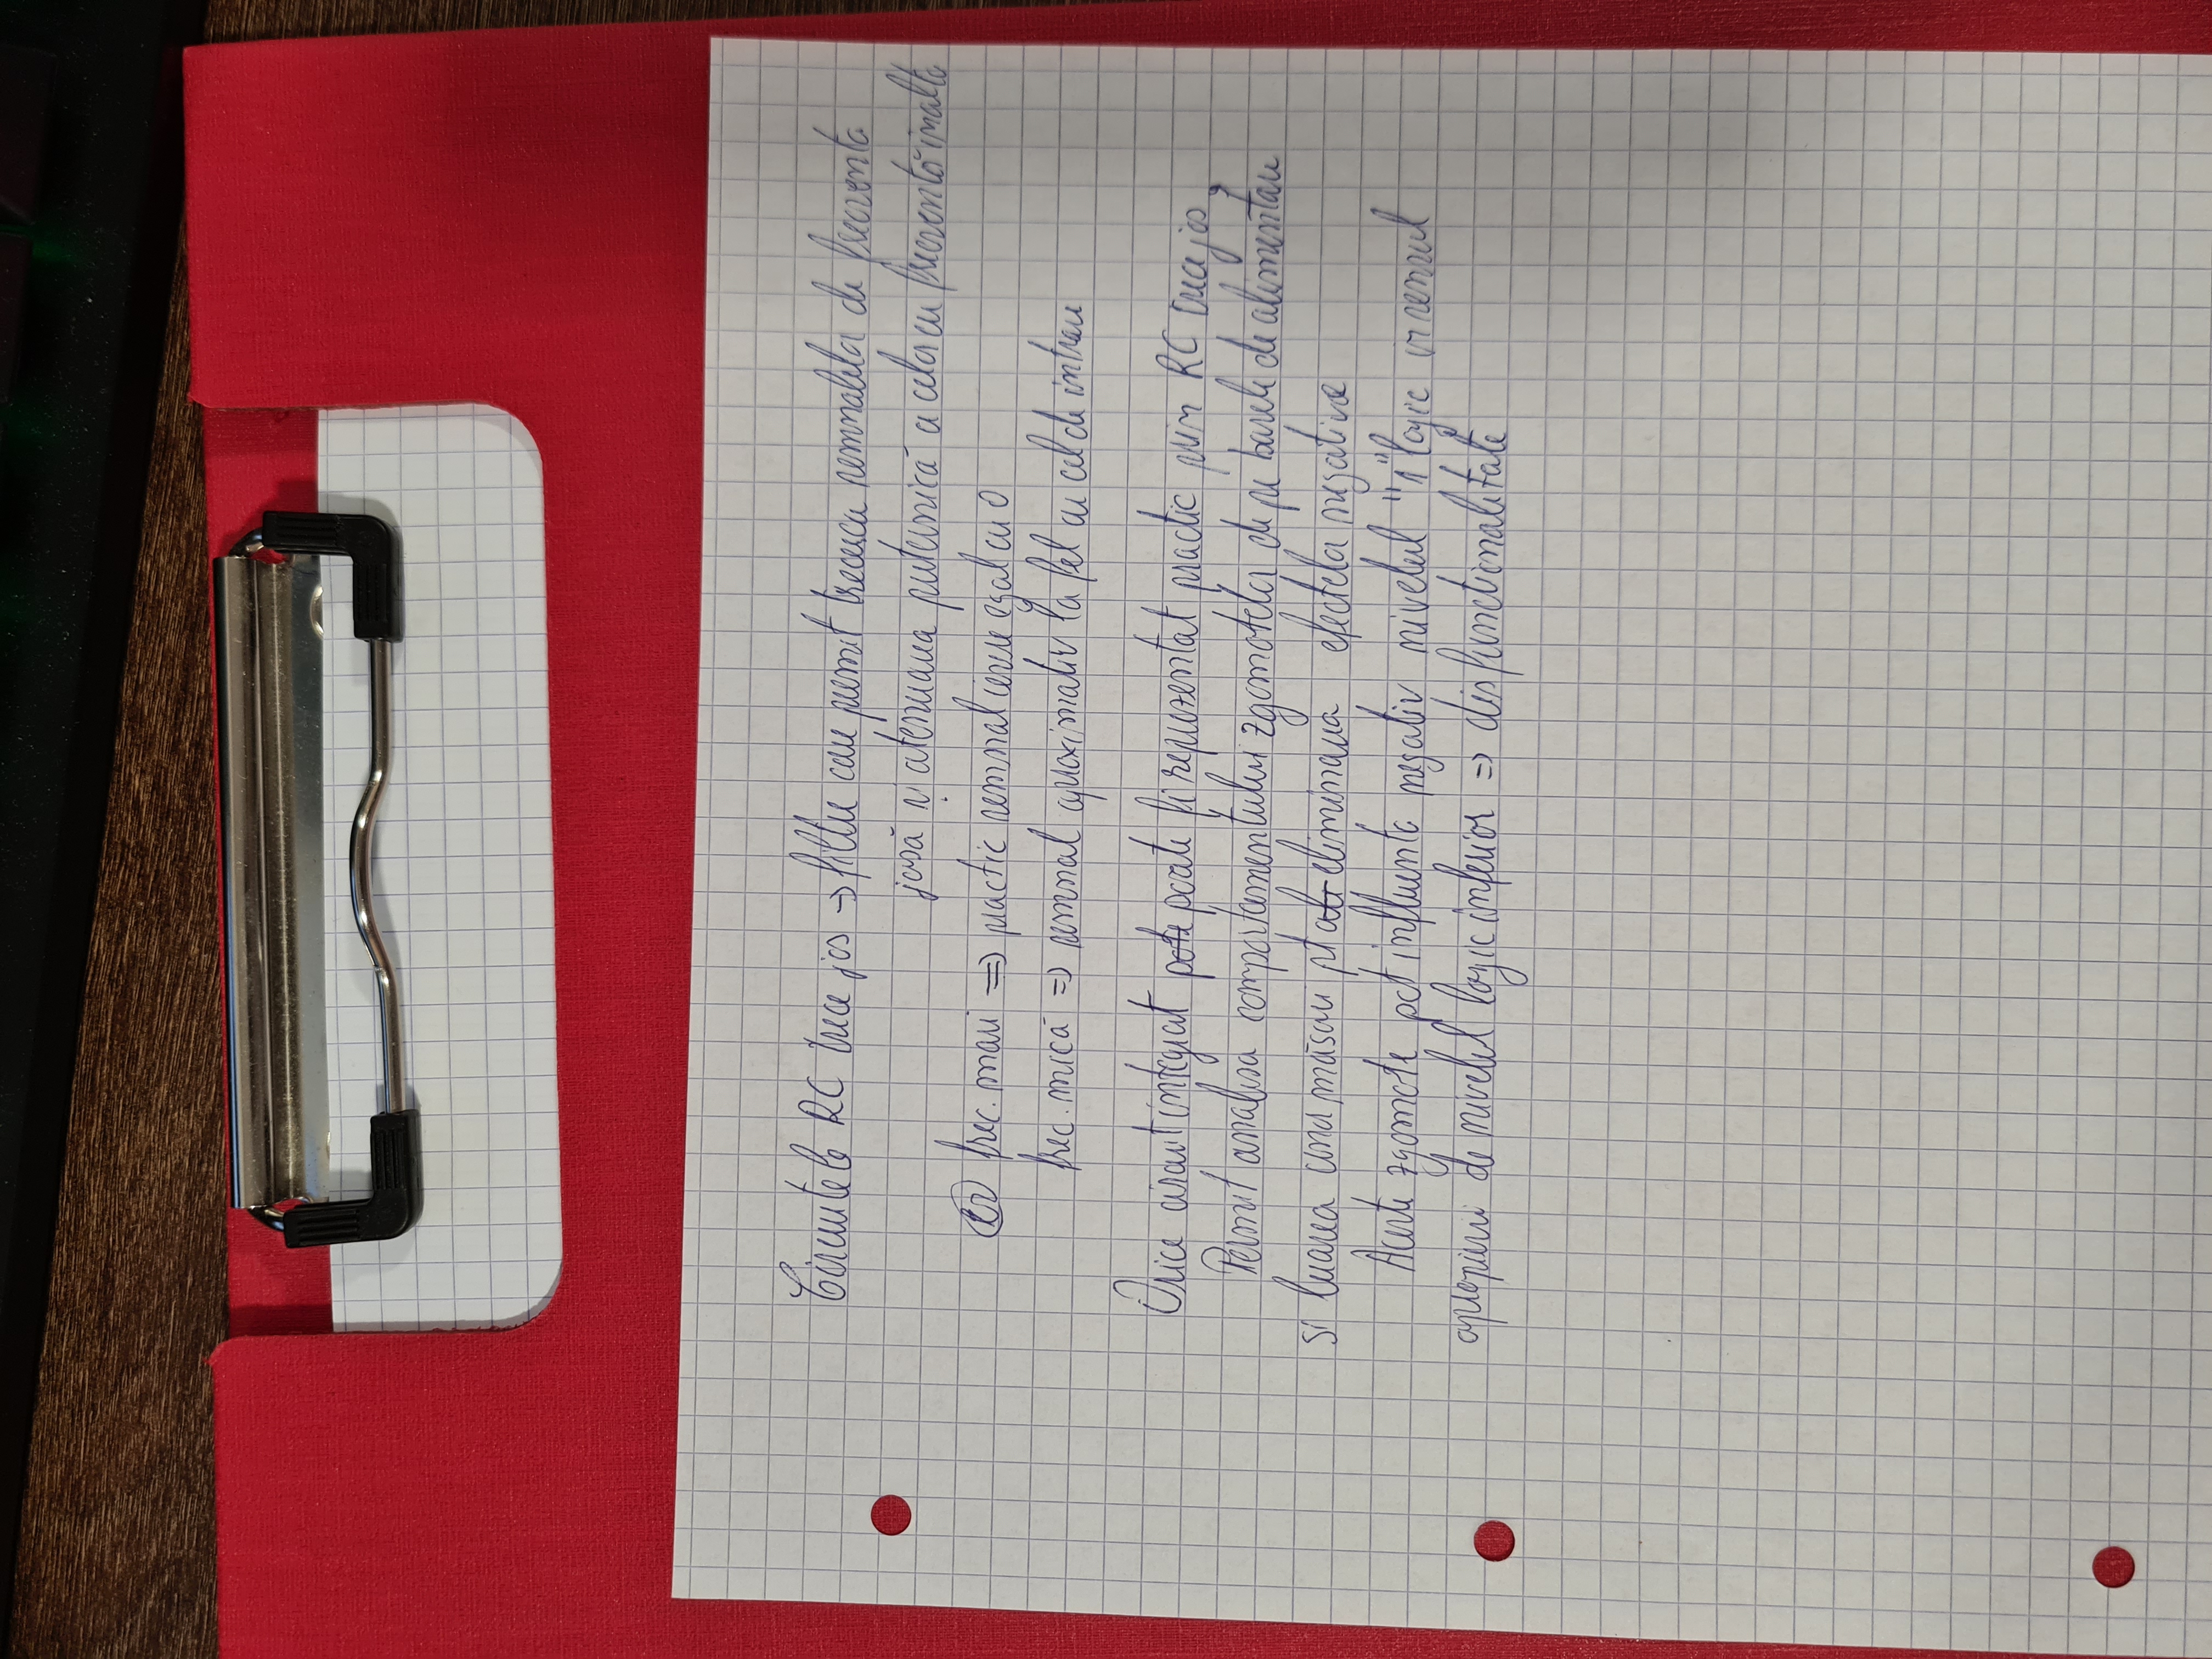 Circuitele RC trece jos → filtre care permit trecerea semnalelor de frecventa
joasă și atenuarea puternică a celor cu frecventă inalta
ex frec. mari => practic semnal iesire egal cu 0
frec. mică => semnal aproximativ la fel cu cel de intrare
Orice circuit integrat pote poate fi reprezentat practic prin RC trece jos,
Permit analiza comportamentului zgomotelor de pe barele de alimentare
si luarea unor măsuri pt eliminarea efectelor negative
Aceste zgomote pot influenta negativ nivelul "1" logic in sensul
apropierii de nivelul logic inferior => disfunctionalitate